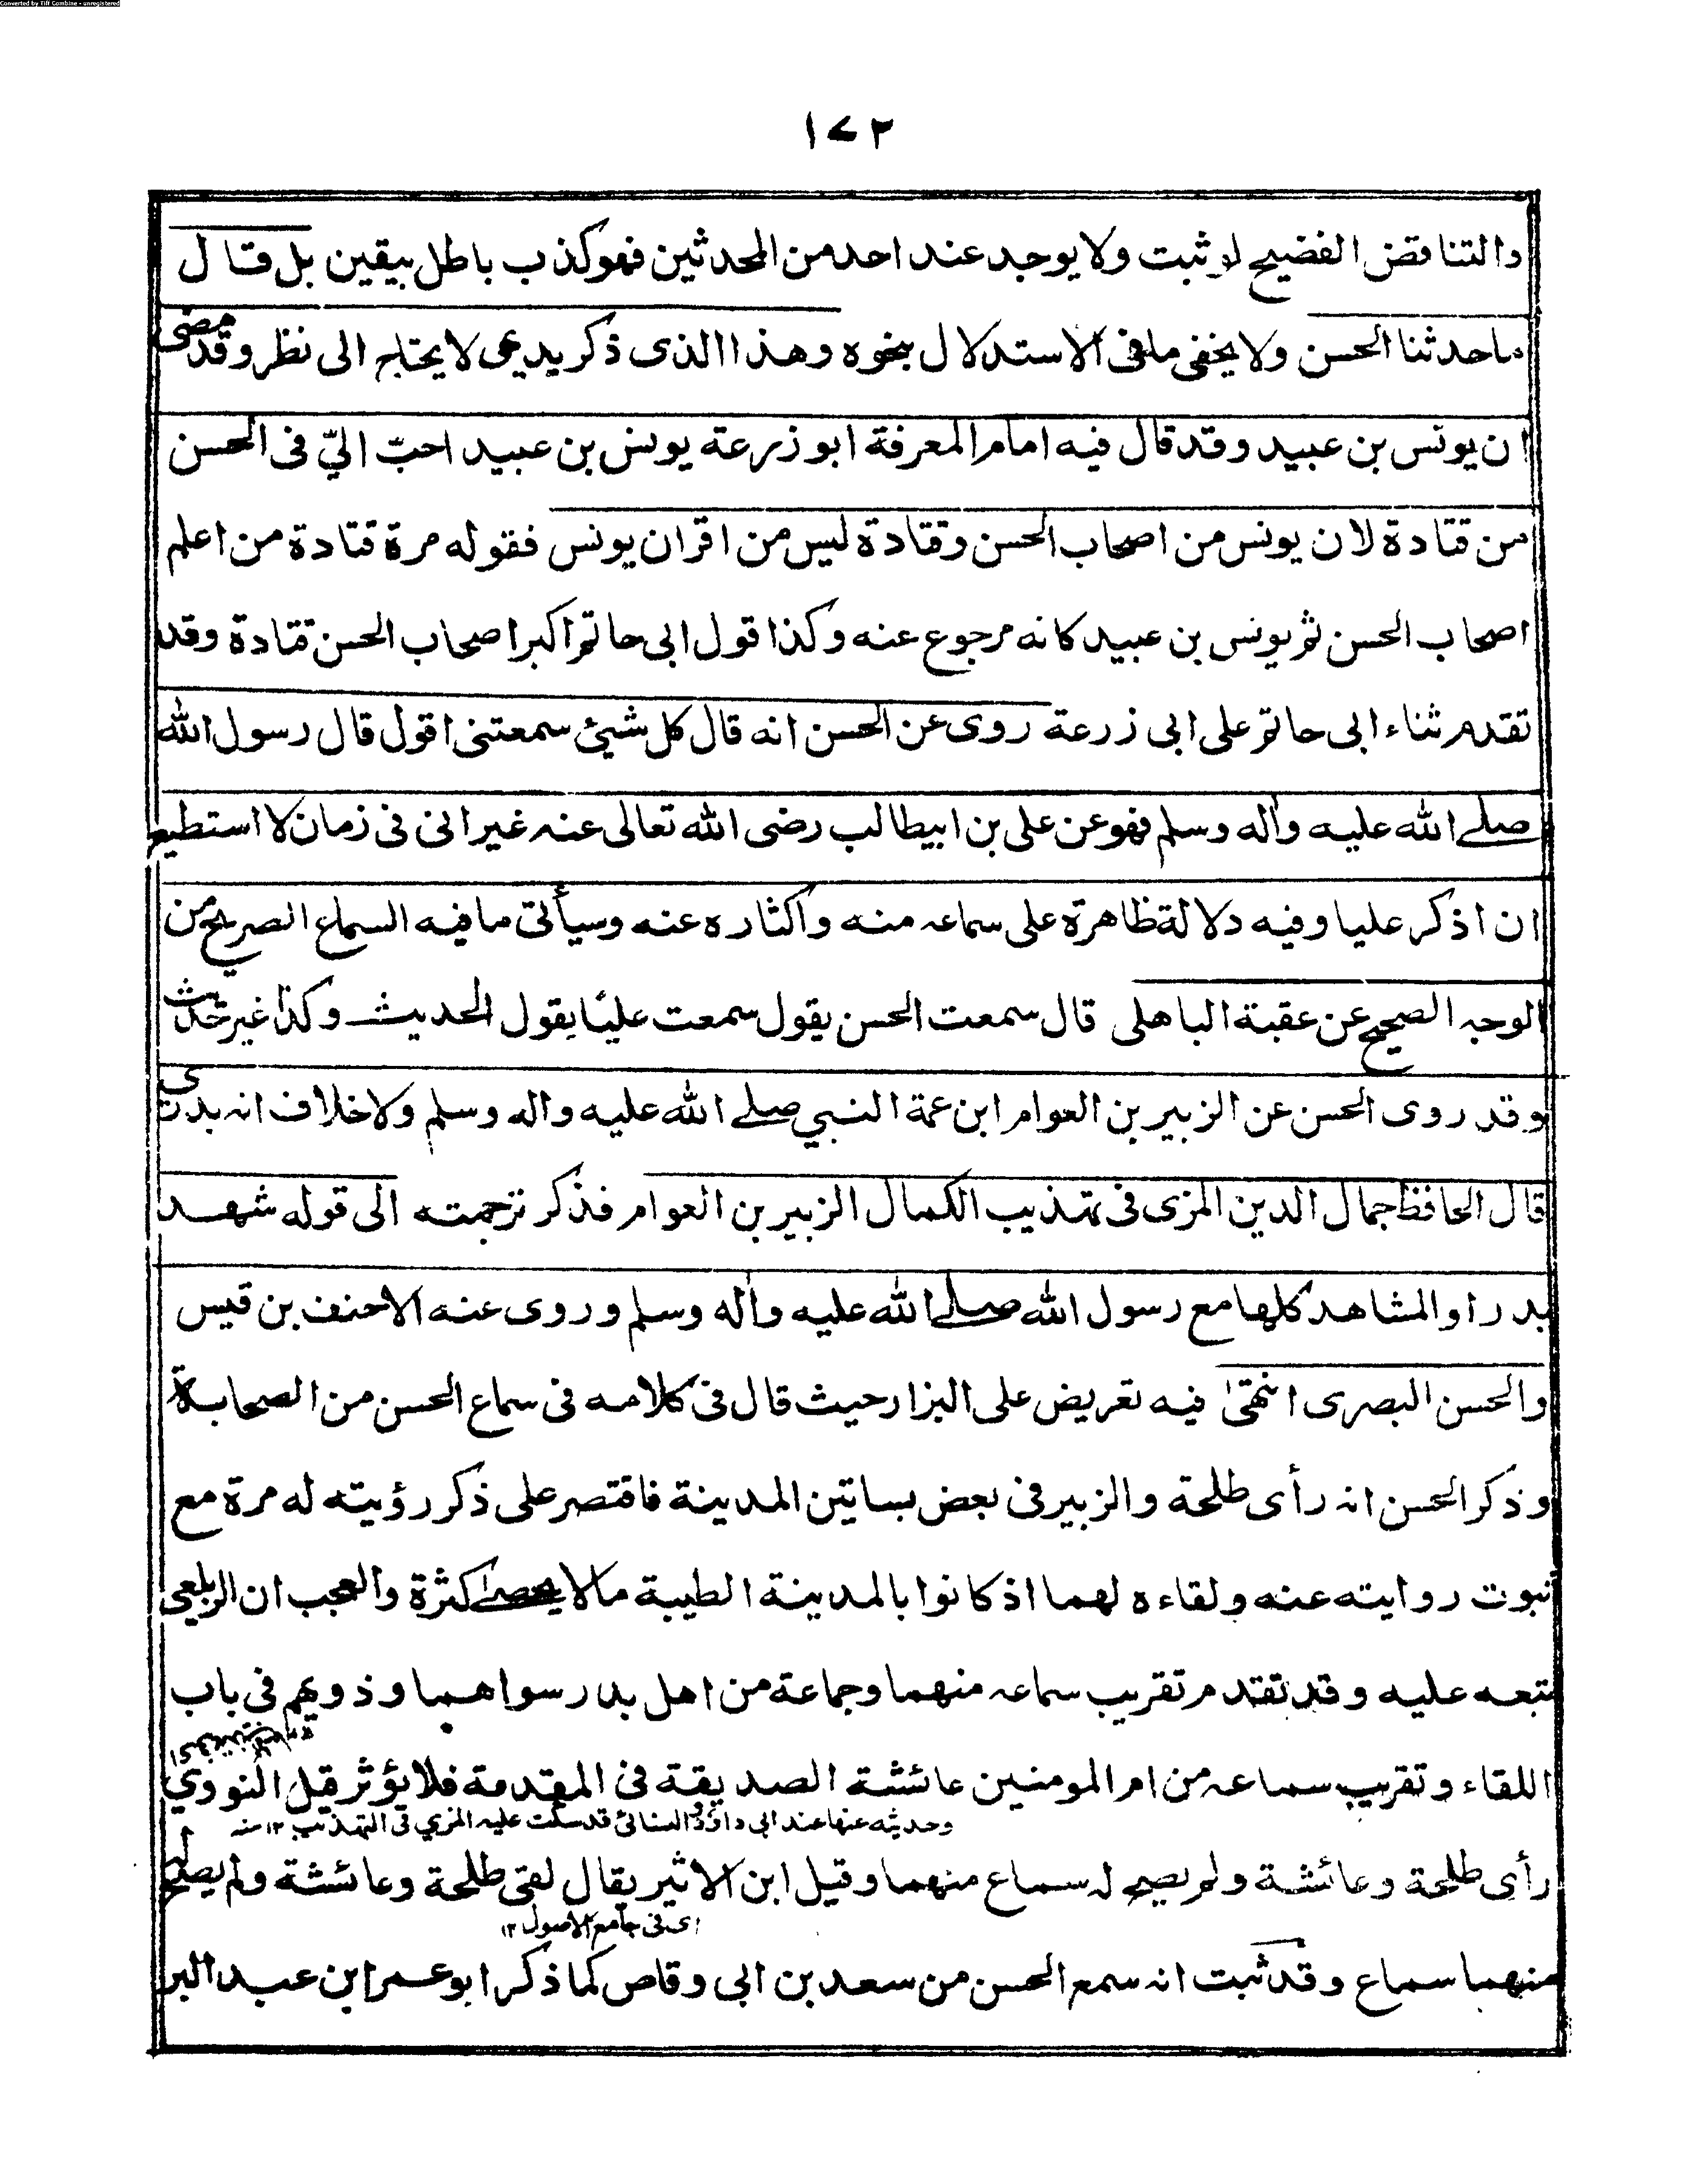 Converted by Tiff Combine - unregistered
١٧٢
والتناقض الفضيح لو ثبت ولا يوجد عند احد من المحدثين فهو كذب باطل بيقين بل قال
ما حدثنا الحسن ولا يخفى ما فى الاستدلال بنحوه وهذا الذى ذكر يدعى لا يحتاج الى نظر وقد مضى
ان يونس بن عبيد وقد قال فيه امام المعرفة ابو زرعة يونس بن عبيد احبّ اليّ فى الحسن
من قتادة لان يونس من اصحاب الحسن وقتادة ليس من اقران يونس فقوله مرة قتادة من اعلم
اصحاب الحسن ثم يونس بن عبيد كانه مرجوع عنه وكذا قول ابى حاتم اكبر اصحاب الحسن قتادة وقد
تقدم ثناء ابى حاتم على ابى زرعة روى عن الحسن انه قال كل شيئ سمعتنى اقول قال رسول الله
صلے الله عليه واٰله وسلم فهو عن على بن ابيطالب رضى الله تعالى عنه غير انى فى زمان لا استطيع
ان اذكر عليا وفيه دلالة ظاهرة على سماعه منه واكثاره عنه وسيأتى ما فيه السماع الصريح من
الوجه الصحيح عن عقبة الباهلى قال سمعت الحسن يقول سمعت عليًا يقول الحديث وكذا غير حديث
وقد روى الحسن عن الزبير بن العوام ابن عمة النبي صلے الله عليه واله وسلم ولا خلاف انه بدرى
قال الحافظ جمال الدين المزى فى تهذيب الكمال الزبير بن العوام فذكر ترجمته الى قوله شهد
بدرا والمشاهد كلها مع رسول الله صلے الله عليه واٰله وسلم وروى عنه الاحنف بن قيس
والحسن البصرى انتهىٰ فيه تعريض على البزار حيث قال فى كلامه فى سماع الحسن من الصحابة
وذكر الحسن انه رأى طلحة والزبير فى بعض بساتين المدينة فاقتصر على ذكر رؤيته له مرة مع
ثبوت روايته عنه ولقاءه لهما اذ كانوا بالمدينة الطيبة ما لا يحصےٰ كثرة والعجب ان الزيلعى
تبعه عليه وقد تقدم تقريب سماعه منهما وجماعة من اهل بدر سواهما وذويهم فى باب
اللقاء وتقريب سماعه من ام المومنين عائشة الصديقة فى المقدمة فلا يؤثر قيل النووي
وحديثه عنها عند ابى داؤد والنسائى قد سكت عليه المزي فى التهذيب ١٢ منه
رأى طلحة وعائشة ولم يصح له سماع منهما وقيل ابن الاثير يقال لقى طلحة وعائشة ولم يصح له
اى فى جامع الاصول ١٢
منهما سماع وقد ثبت انه سمع الحسن من سعد بن ابى وقاص كما ذكر ابو عمر ابن عبد البر